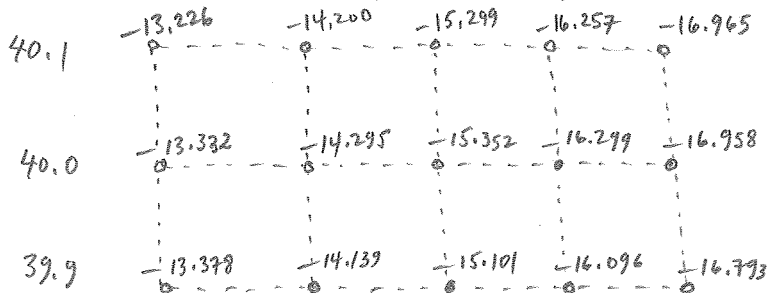 40.1 -13,226 -14,200 -15,299 -16.257 -16.965
40.0 -13.332 -14.295 -15.352 -16.299 -16.958
39.9 -13.378 -14.139 -15.101 -16.096 -16.793